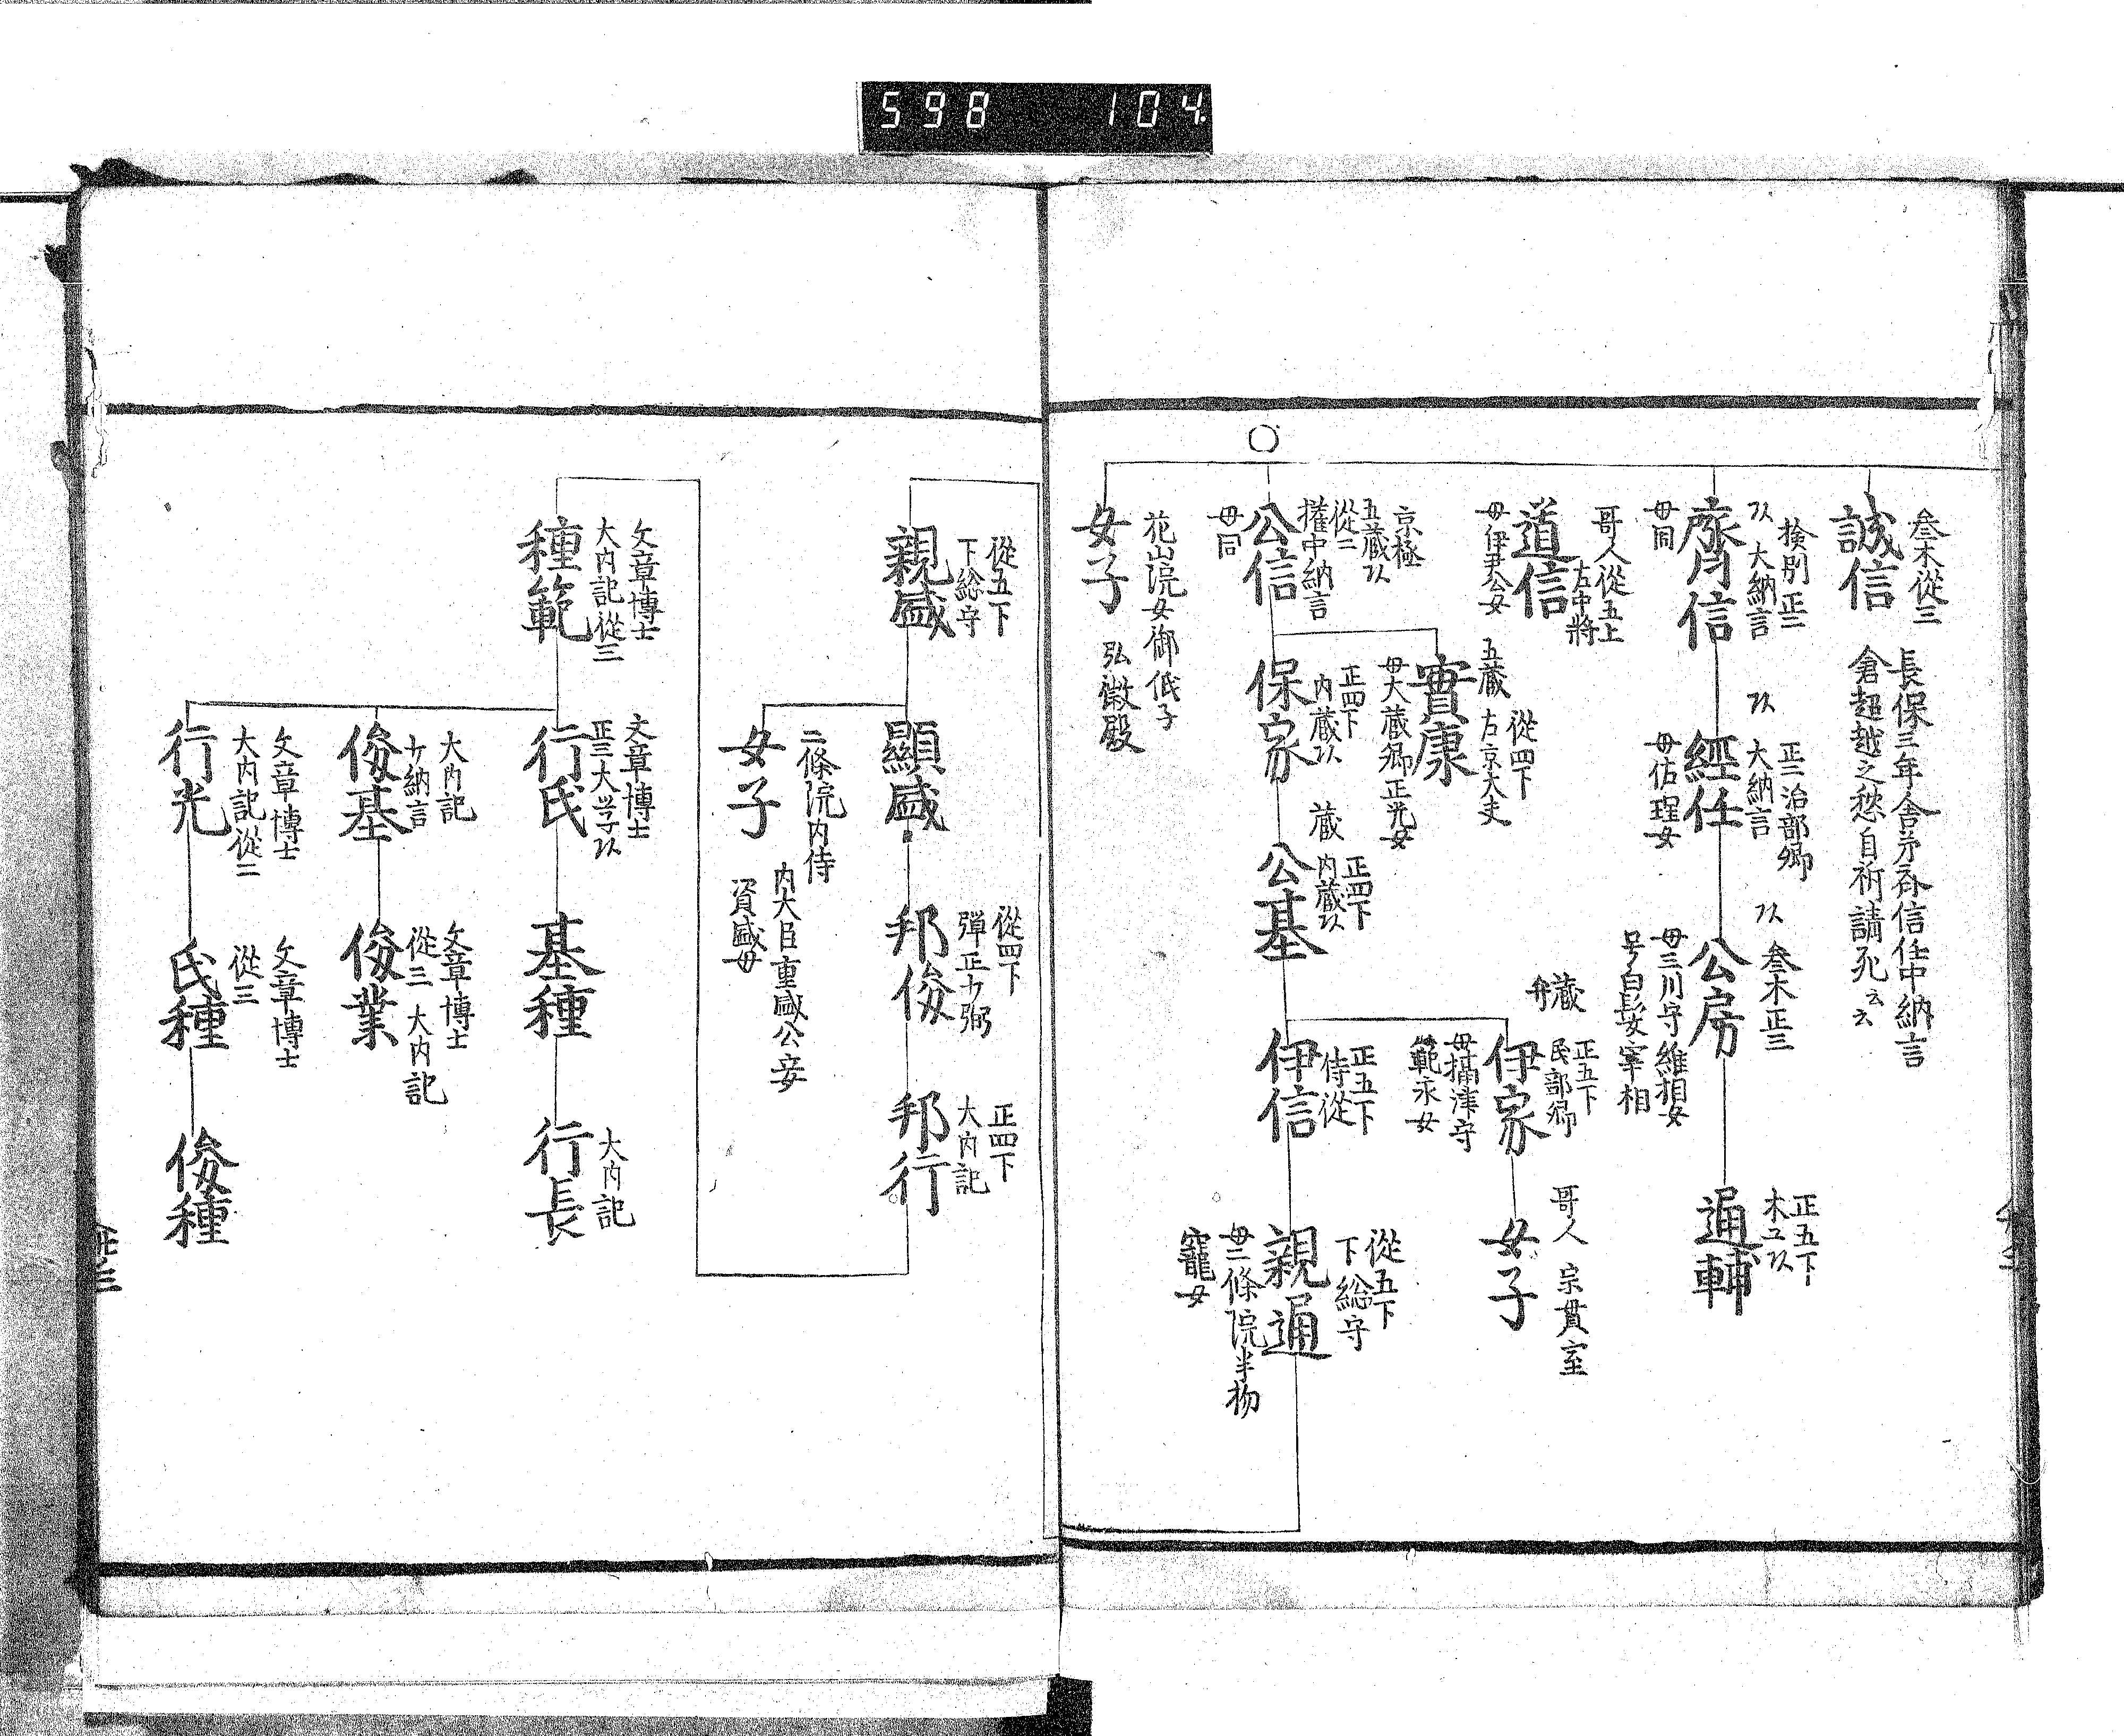 598 104
叅木從三
誠信
長保三年舎弟斉信任中納言
倉超越之愁自祈請死云云
検別正二
大納言
齊信
母同
正二治部卿
大納言
經任
母佐理女
叅木正三
公房
母三川守維相女
号白髪宰相
正五下
木工
通輔
哥人從五上
左中將
道信
母伊尹公女
京極
五蔵
從二
權中納言
公信
母同
五蔵
從四下
右京大夫
實康
母大蔵卿正光女
正四下
内蔵
保家
蔵
正四下
内蔵
公基
蔵
弁
正五下
民部卿
伊家
母摂津守
範永女
哥人
宗貫室
女子
正五下
侍從
伊信
從五下
下総守
親通
母二條院半物
寵女
花山院女御低子
弘徽殿
女子
從五下
下総守
親盛
顯盛
從四下
弾正少弼
邦俊
正四下
大内記
邦行
二條院内侍
女子
内大臣重盛公妾
資盛母
文章博士
大内記從三
種範
文章博士
正三大学
行氏
基種
大内記
行長
大内記
少納言
俊基
文章博士
從三
大内記
俊業
文章博士
大内記從三
行光
文章博士
從三
氏種
俊種